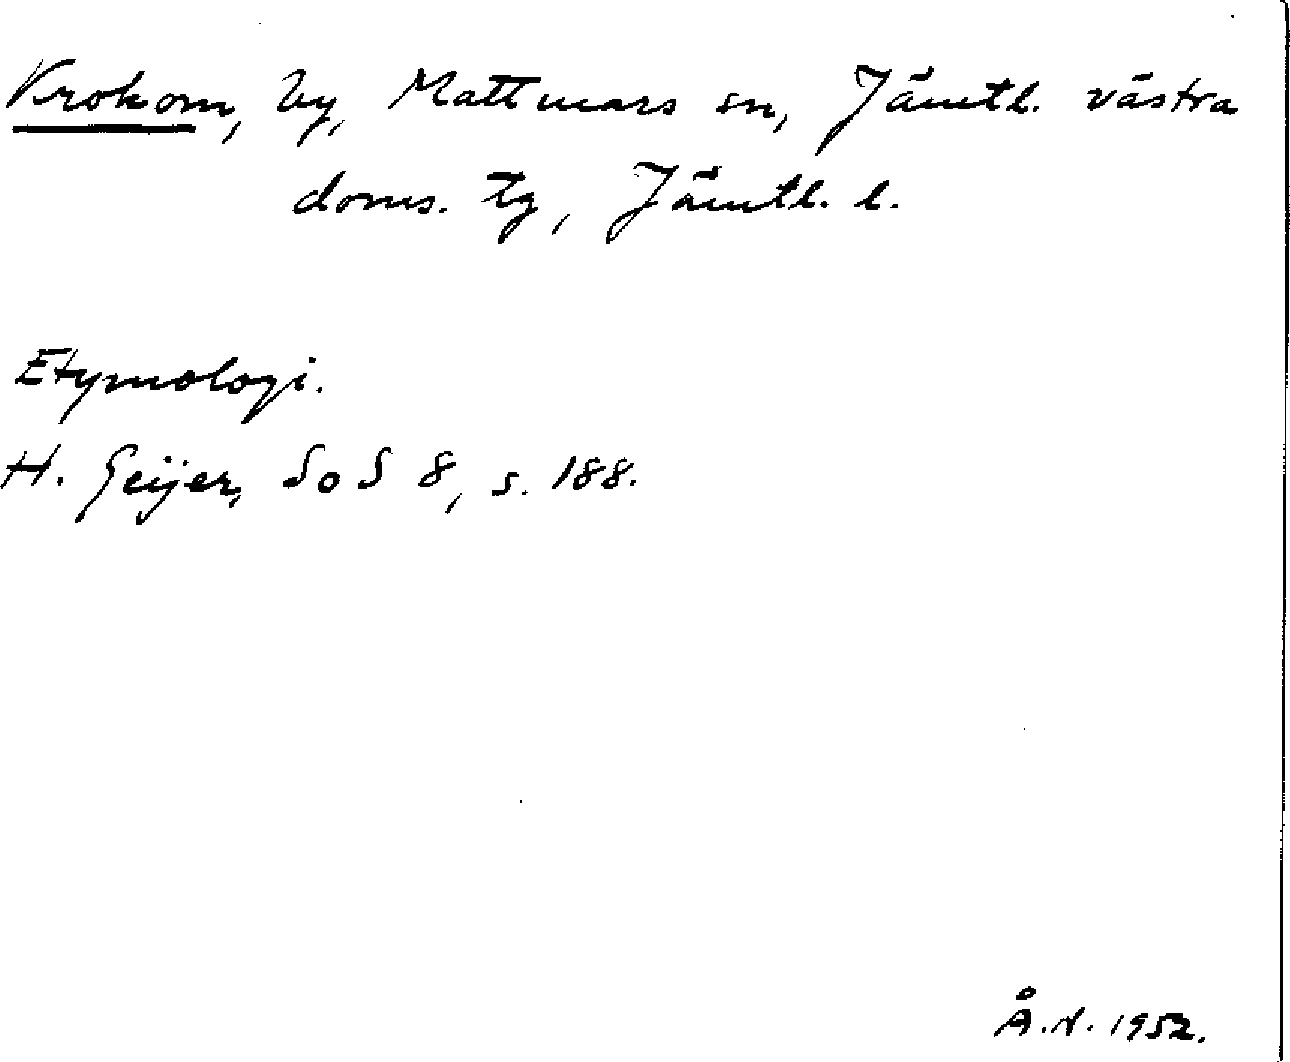 Krokom, by, Mattmars sn, Jämtl. västra
doms. tg, Jämtl. l.
Etymologi.
H. Geijer, SoS 8, s. 188.
Å.N. 1952.